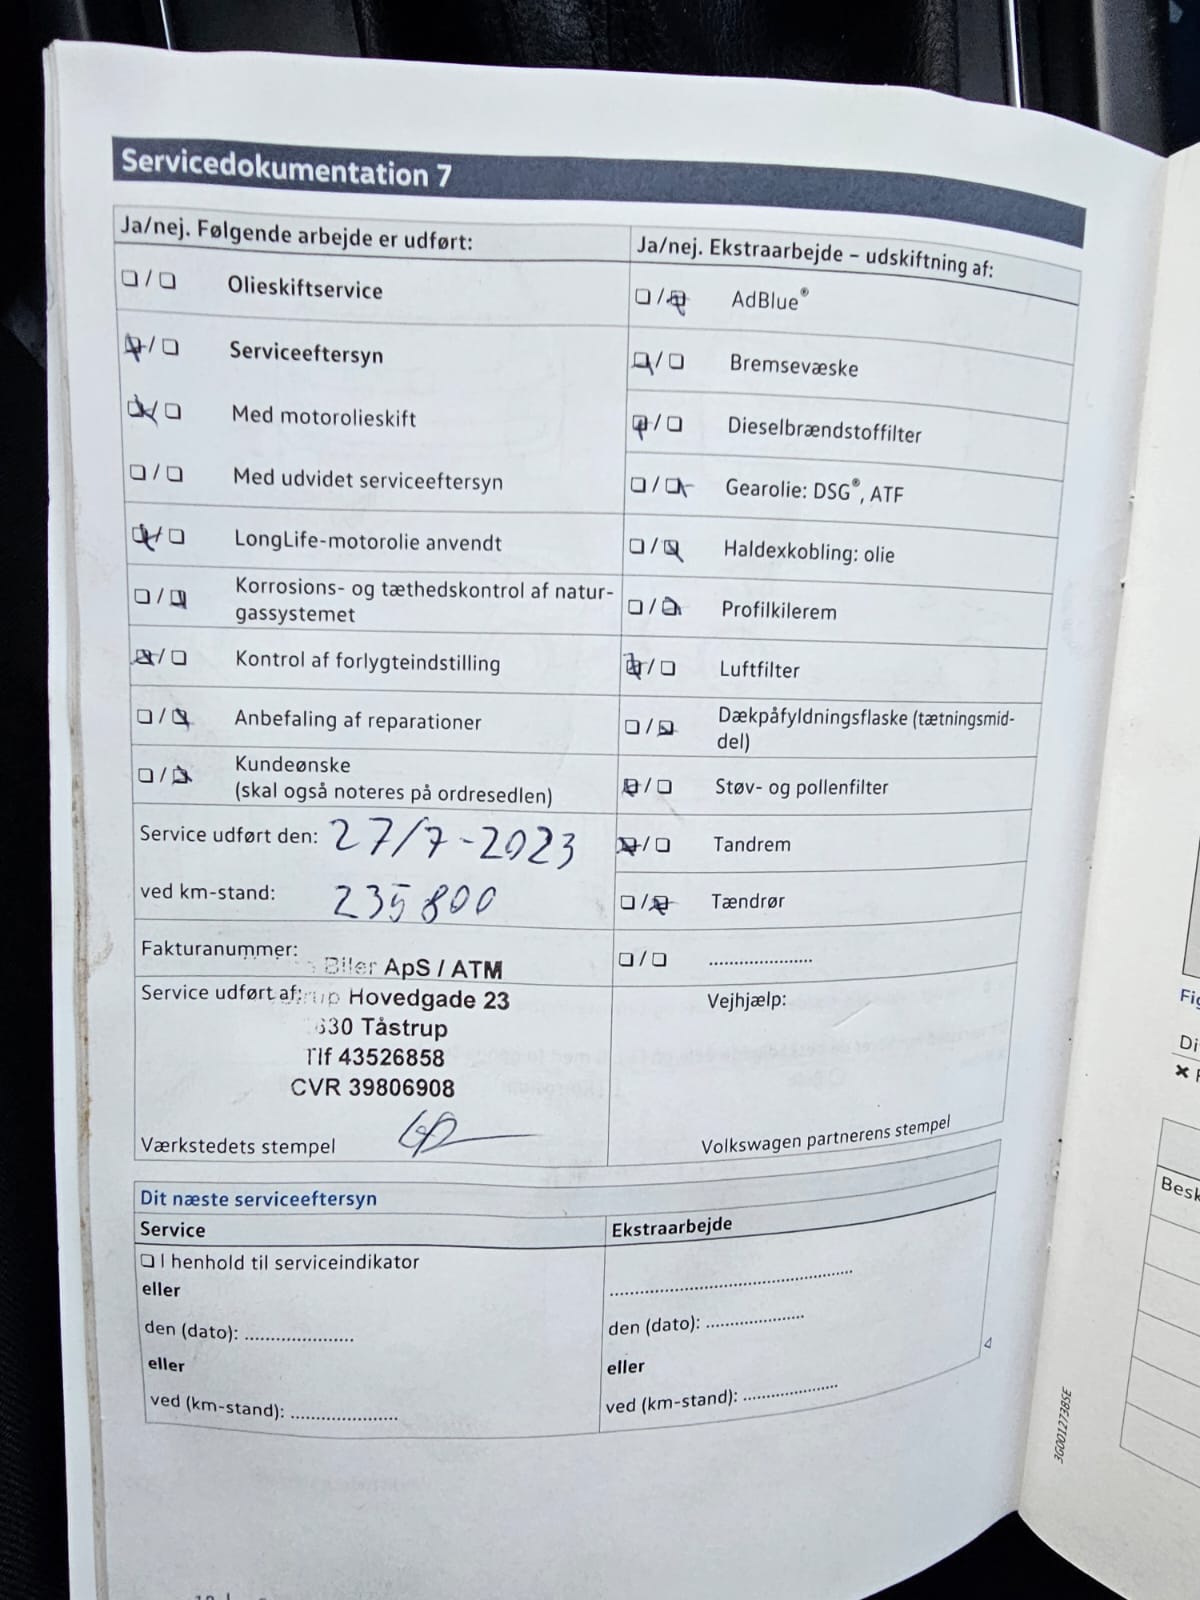 Servicedokumentation 7
Ja/nej. Følgende arbejde er udført:
☐ / ☐ Olieskiftservice
☒ / ☐ Serviceeftersyn
☒ / ☐ Med motorolieskift
☐ / ☐ Med udvidet serviceeftersyn
☒ / ☐ LongLife-motorolie anvendt
☐ / ☒ Korrosions- og tæthedskontrol af natur-
gassystemet
☒ / ☐ Kontrol af forlygteindstilling
☐ / ☒ Anbefaling af reparationer
☐ / ☒ Kundeønske
(skal også noteres på ordresedlen)
Service udført den: 27/7-2023
ved km-stand: 235800
Fakturanummer:
Biler ApS / ATM
Service udført af:
Hovedgade 23
2630 Tåstrup
Tlf 43526858
CVR 39806908
Værkstedets stempel
Ja/nej. Ekstraarbejde – udskiftning af:
☐ / ☒ AdBlue®
☒ / ☐ Bremsevæske
☒ / ☐ Dieselbrændstoffilter
☐ / ☒ Gearolie: DSG®, ATF
☐ / ☒ Haldexkobling: olie
☐ / ☒ Profilkilerem
☒ / ☐ Luftfilter
☐ / ☒ Dækpåfyldningsflaske (tætningsmid-
del)
☒ / ☐ Støv- og pollenfilter
☒ / ☐ Tandrem
☐ / ☒ Tændrør
☐ / ☐ .....................
Vejhjælp:
Volkswagen partnerens stempel
Dit næste serviceeftersyn
Service
☐ I henhold til serviceindikator
eller
den (dato): .....................
eller
ved (km-stand): .....................
Ekstraarbejde
................................................
den (dato): ....................
eller
ved (km-stand): ....................
3G0012738SE
Fig
Di
Besk